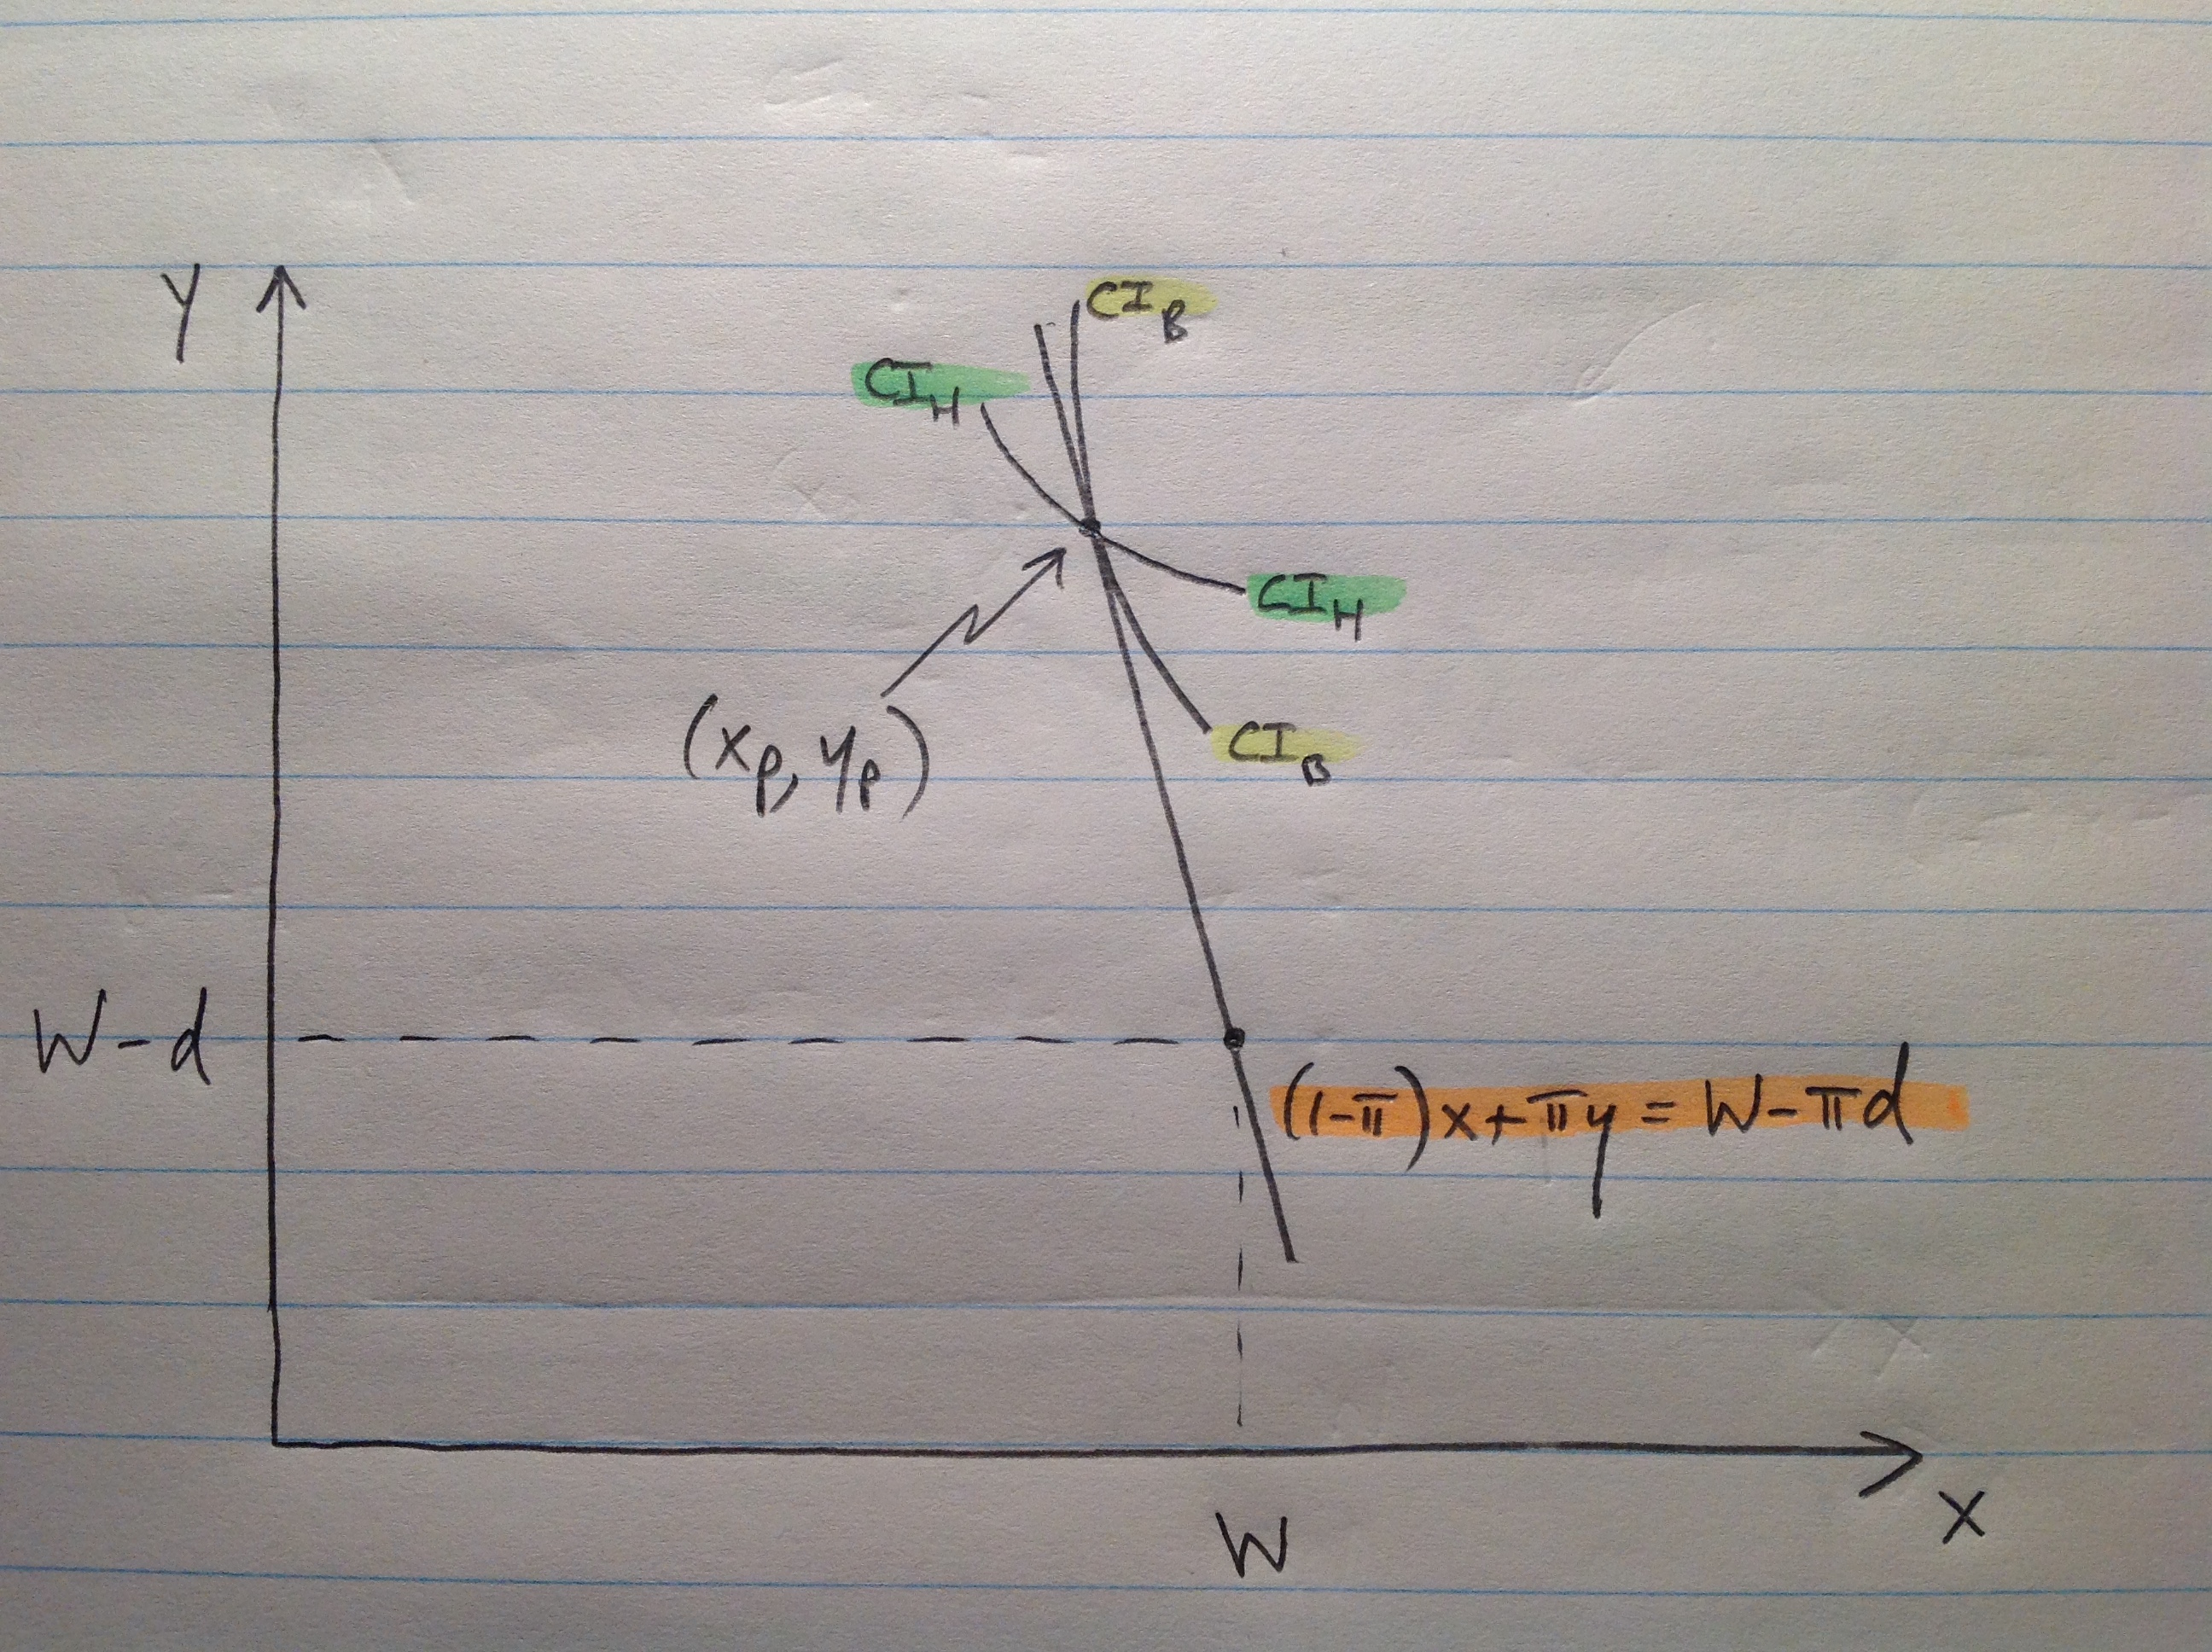 Y
CI_B
CI_H
CI_H
(x_p, y_p)
CI_B
W-d
(1-π)x+πy = W-πd
W
X